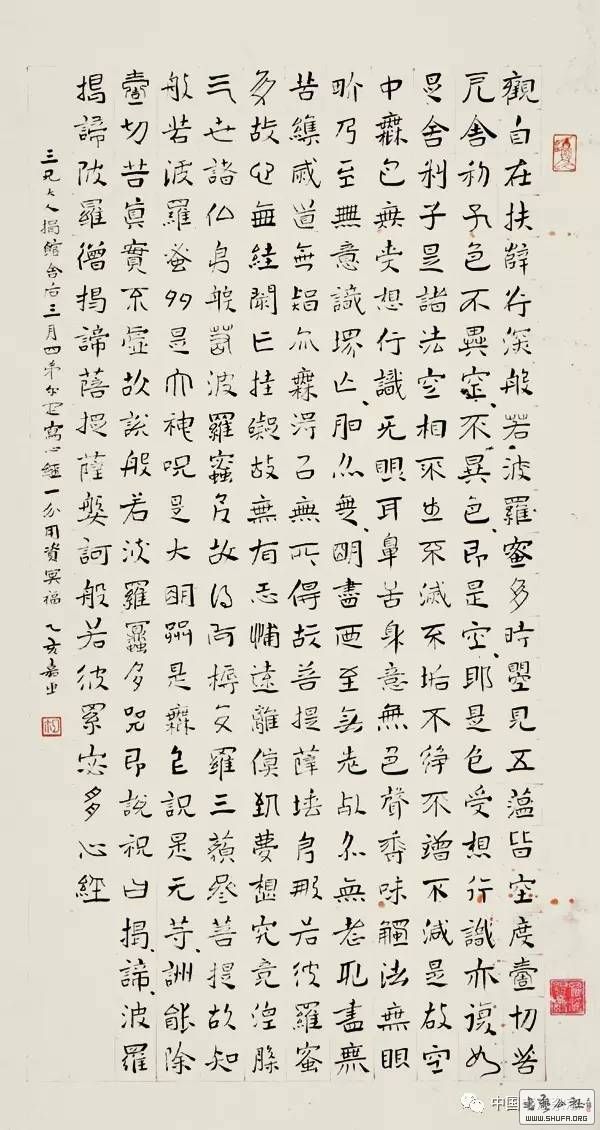 觀自在扶薛行深般若波羅蜜多時曌見五蕰皆空度壹切苦
戹舍利子色不異空不異色即是空耶是色受想行識亦復如
是舍利子是諸法空相不生不滅不垢不諍不增不減是故空
中無色無受想行識无眼耳鼻舌身意無色聲香味觸法無眼
界乃至無意識界亡明亦無明盡乃至無老死亦無老死盡無
苦集滅道無智亦無得以無所得故菩提薩埵依般若彼羅蜜
多故心無罣閡亡挂礙故無有恐怖遠離傎到夢想究竟涅槃
三世諸仏依般若波羅蜜多故得阿耨多羅三藐三菩提故知
般若波羅蜜多是大神呪是大明呪是無上呪是无等、呪能除
壹切苦真實不虛故說般若波羅蜜多呪即說祝曰揭諦、波羅
揭諦陂羅僧揭諦菩提薩婆訶般若彼羅蜜多心經
三兄大人捐館舍后三月四弟寫心經一分用資冥福 乙亥嘉平
中国
書法公社
WWW.SHUFA.ORG